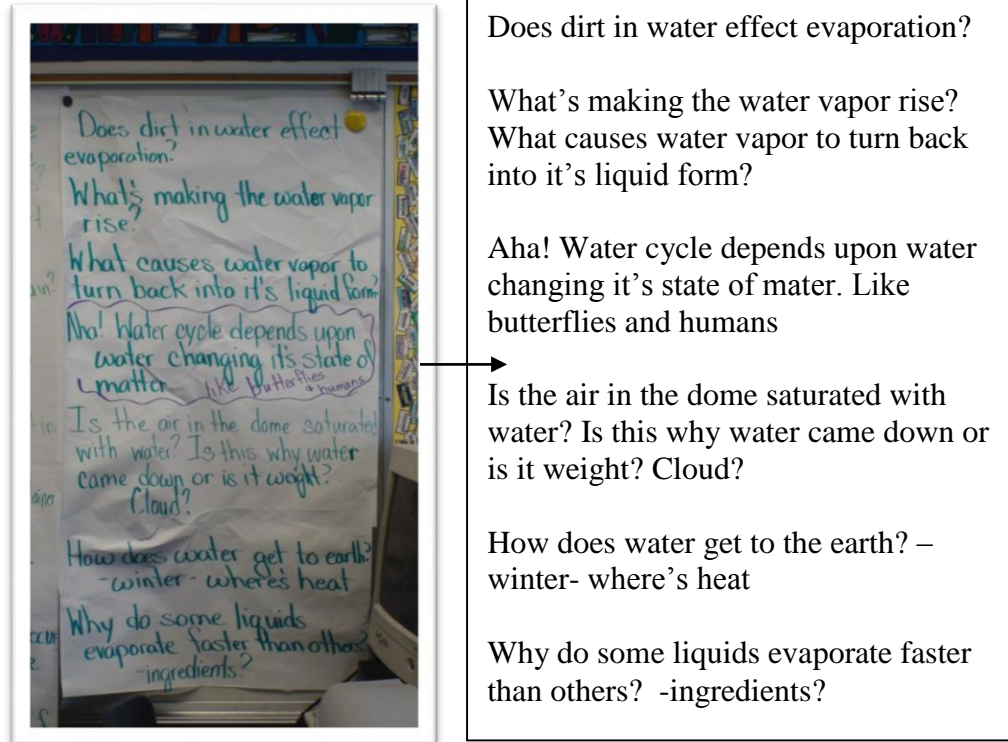 Does dirt in water effect
evaporation?
What's making the water vapor
rise?
What causes water vapor to
turn back into it's liquid form?
Aha! Water cycle depends upon
water changing it's state of
matter like butterflies & humans
Is the air in the dome saturated
with water? Is this why water
came down or is it weight?
Cloud?
How does water get to earth?
-winter- where's heat
Why do some liquids
evaporate faster than others?
-ingredients?
Does dirt in water effect evaporation?
What's making the water vapor rise?
What causes water vapor to turn back
into it's liquid form?
Aha! Water cycle depends upon water
changing it's state of mater. Like
butterflies and humans
Is the air in the dome saturated with
water? Is this why water came down or
is it weight? Cloud?
How does water get to the earth? –
winter- where's heat
Why do some liquids evaporate faster
than others?  -ingredients?